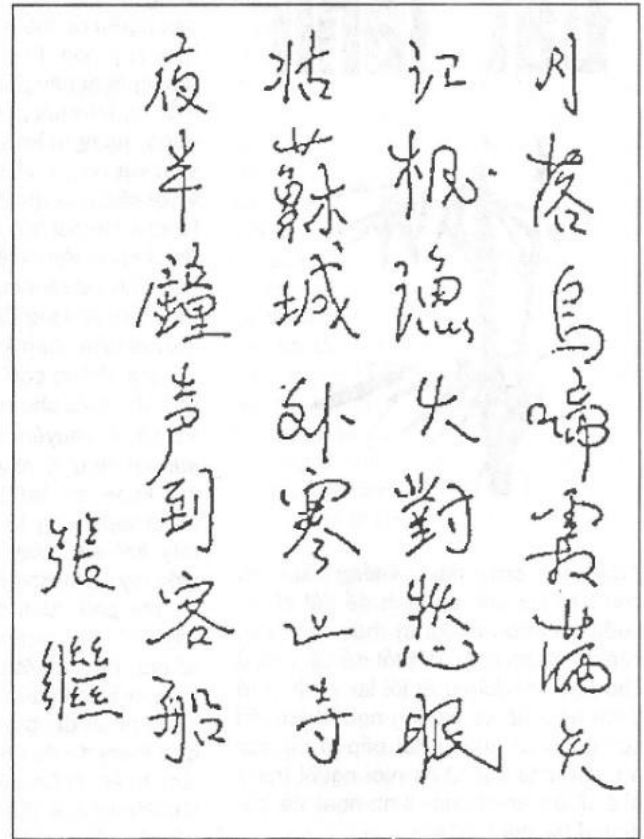 月落烏啼霜滿天
江枫漁火對愁眠
姑蘇城外寒山寺
夜半鐘声到客船
張繼